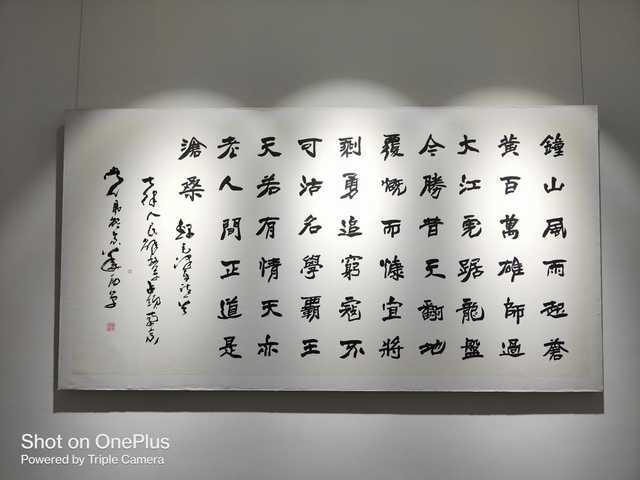 鐘山風雨起蒼
黄百萬雄師過
大江虎踞龍盤
今勝昔天翻地
覆慨而慷宜將
剩勇追窮寇不
可沽名學霸王
天若有情天亦
老人間正道是
滄桑 錄毛澤東詩
七律人民解放軍占領南京
Shot on OnePlus
Powered by Triple Camera